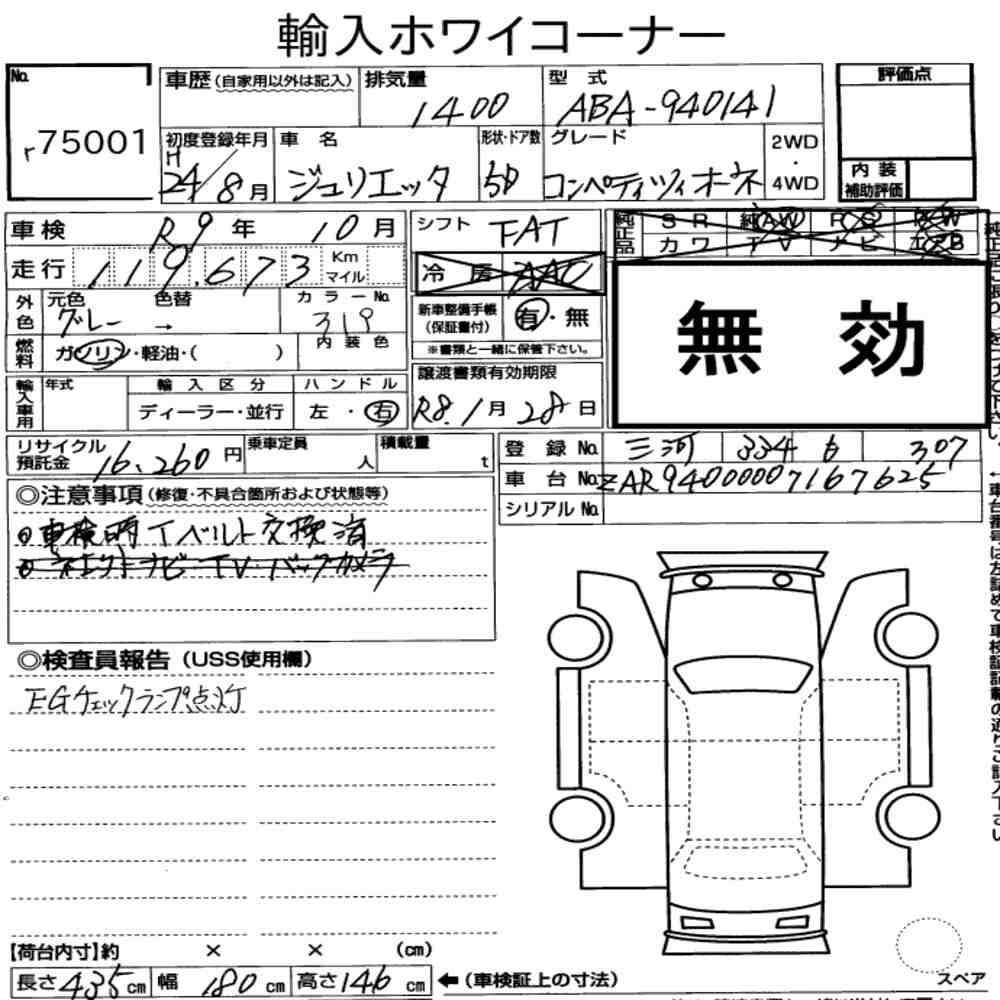 輸入ホワイコーナー
No.
r75001
車歴(自家用以外は記入)
排気量
1400
型 式
ABA-940141
評価点
初度登録年月
H
24/8月
車 名
ジュリエッタ
形状・ドア数
5D
グレード
コンペティツィオーネ
2WD
・
4WD
内 装
補助評価
車検
R9年 10月
走行
119,673
Km
マイル
シフト
FAT
純正品
S R 純AW P S P W
カ ワ T V ナ ビ エアB
冷 房 AAC
外色
元色
グレー
色替
→
カラーNo.
319
新車整備手帳
(保証書付)
有・無
※書類と一緒に保管下さい。
無 効
燃料
ガソリン・軽油・( )
内 装 色
輸入車用
年式
輸 入 区 分
ディーラー・並行
ハ ン ド ル
左 ・ 右
譲渡書類有効期限
R8.1月 28日
リサイクル
預託金
16,260円
乗車定員
人
積載量
t
登 録 No.
三河 334 る 307
車 台 No.
ZAR94000007167625
シリアル No.
◎注意事項(修復・不具合箇所および状態等)
○車検時Tベルト交換済
○ネエクトナビーTV・バックカメラ
◎検査員報告(USS使用欄)
EGチェックランプ点灯
【荷台内寸】約 × × (cm)
長さ435cm 幅 180cm 高さ146cm
←(車検証上の寸法)
スペア